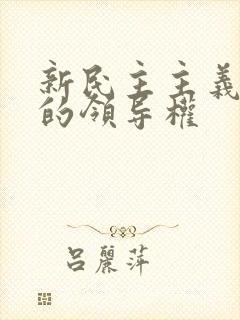 新民主主義
的領导權
吕麗萍